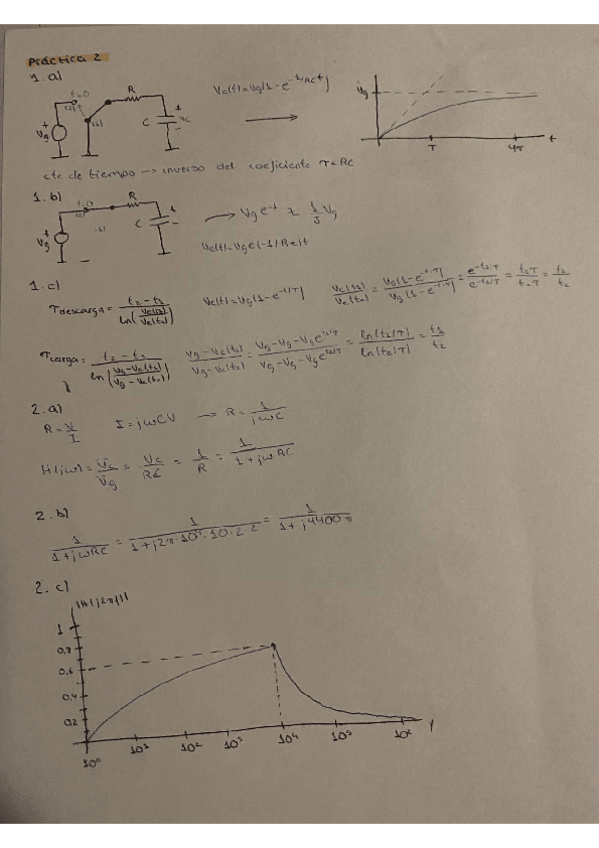 Práctica 2
1. a)
t=0 R Vc(t)=Vg(1-e^-1/RC t)
Vg C Vc Vg
T 4T t
cte de tiempo → inverso del coeficiente T=RC
1. b)
t=0 R
Vg C → Vg e^-1 ≈ 1/3 Vg
Vc(t)=Vg e(-1/RC)t
1. c)
Tdescarga = (t2-t1)/(ln(Vc(t1)/Vc(t2))) Vc(t)=Vg(1-e^-t/T) Vc(t1)/Vc(t2) = Vg(1-e^-t1/T)/Vg(1-e^-t/T) = e^-t1/T/e^-t2/T = t1T/t2T = t1/t2
Tcarga = (t2-t1)/(ln(Vg-Vc(t1)/Vg-Vc(t2))) Vg-Vc(t1)/Vg-Vc(t2) = Vg-Vg-Vge^t1/T/Vg-Vg-Vge^t2/T = ln(t1/T)/ln(t2/T) = t1/t2
2. a)
R=V/I I=jωCV → R=1/jωC
H(jω)=Vc/Vg = Vc/RI = 1/R = 1/(1+jωRC)
2. b)
1/(1+jωRC) = 1/(1+j2π·10⁴·10·2.2) = 1/(1+j4400π)
2. c)
|H(j2πf)|
1
0,8
0,6
0,4
0,2
10⁰ 10¹ 10² 10³ 10⁴ 10⁵ 10⁶ f